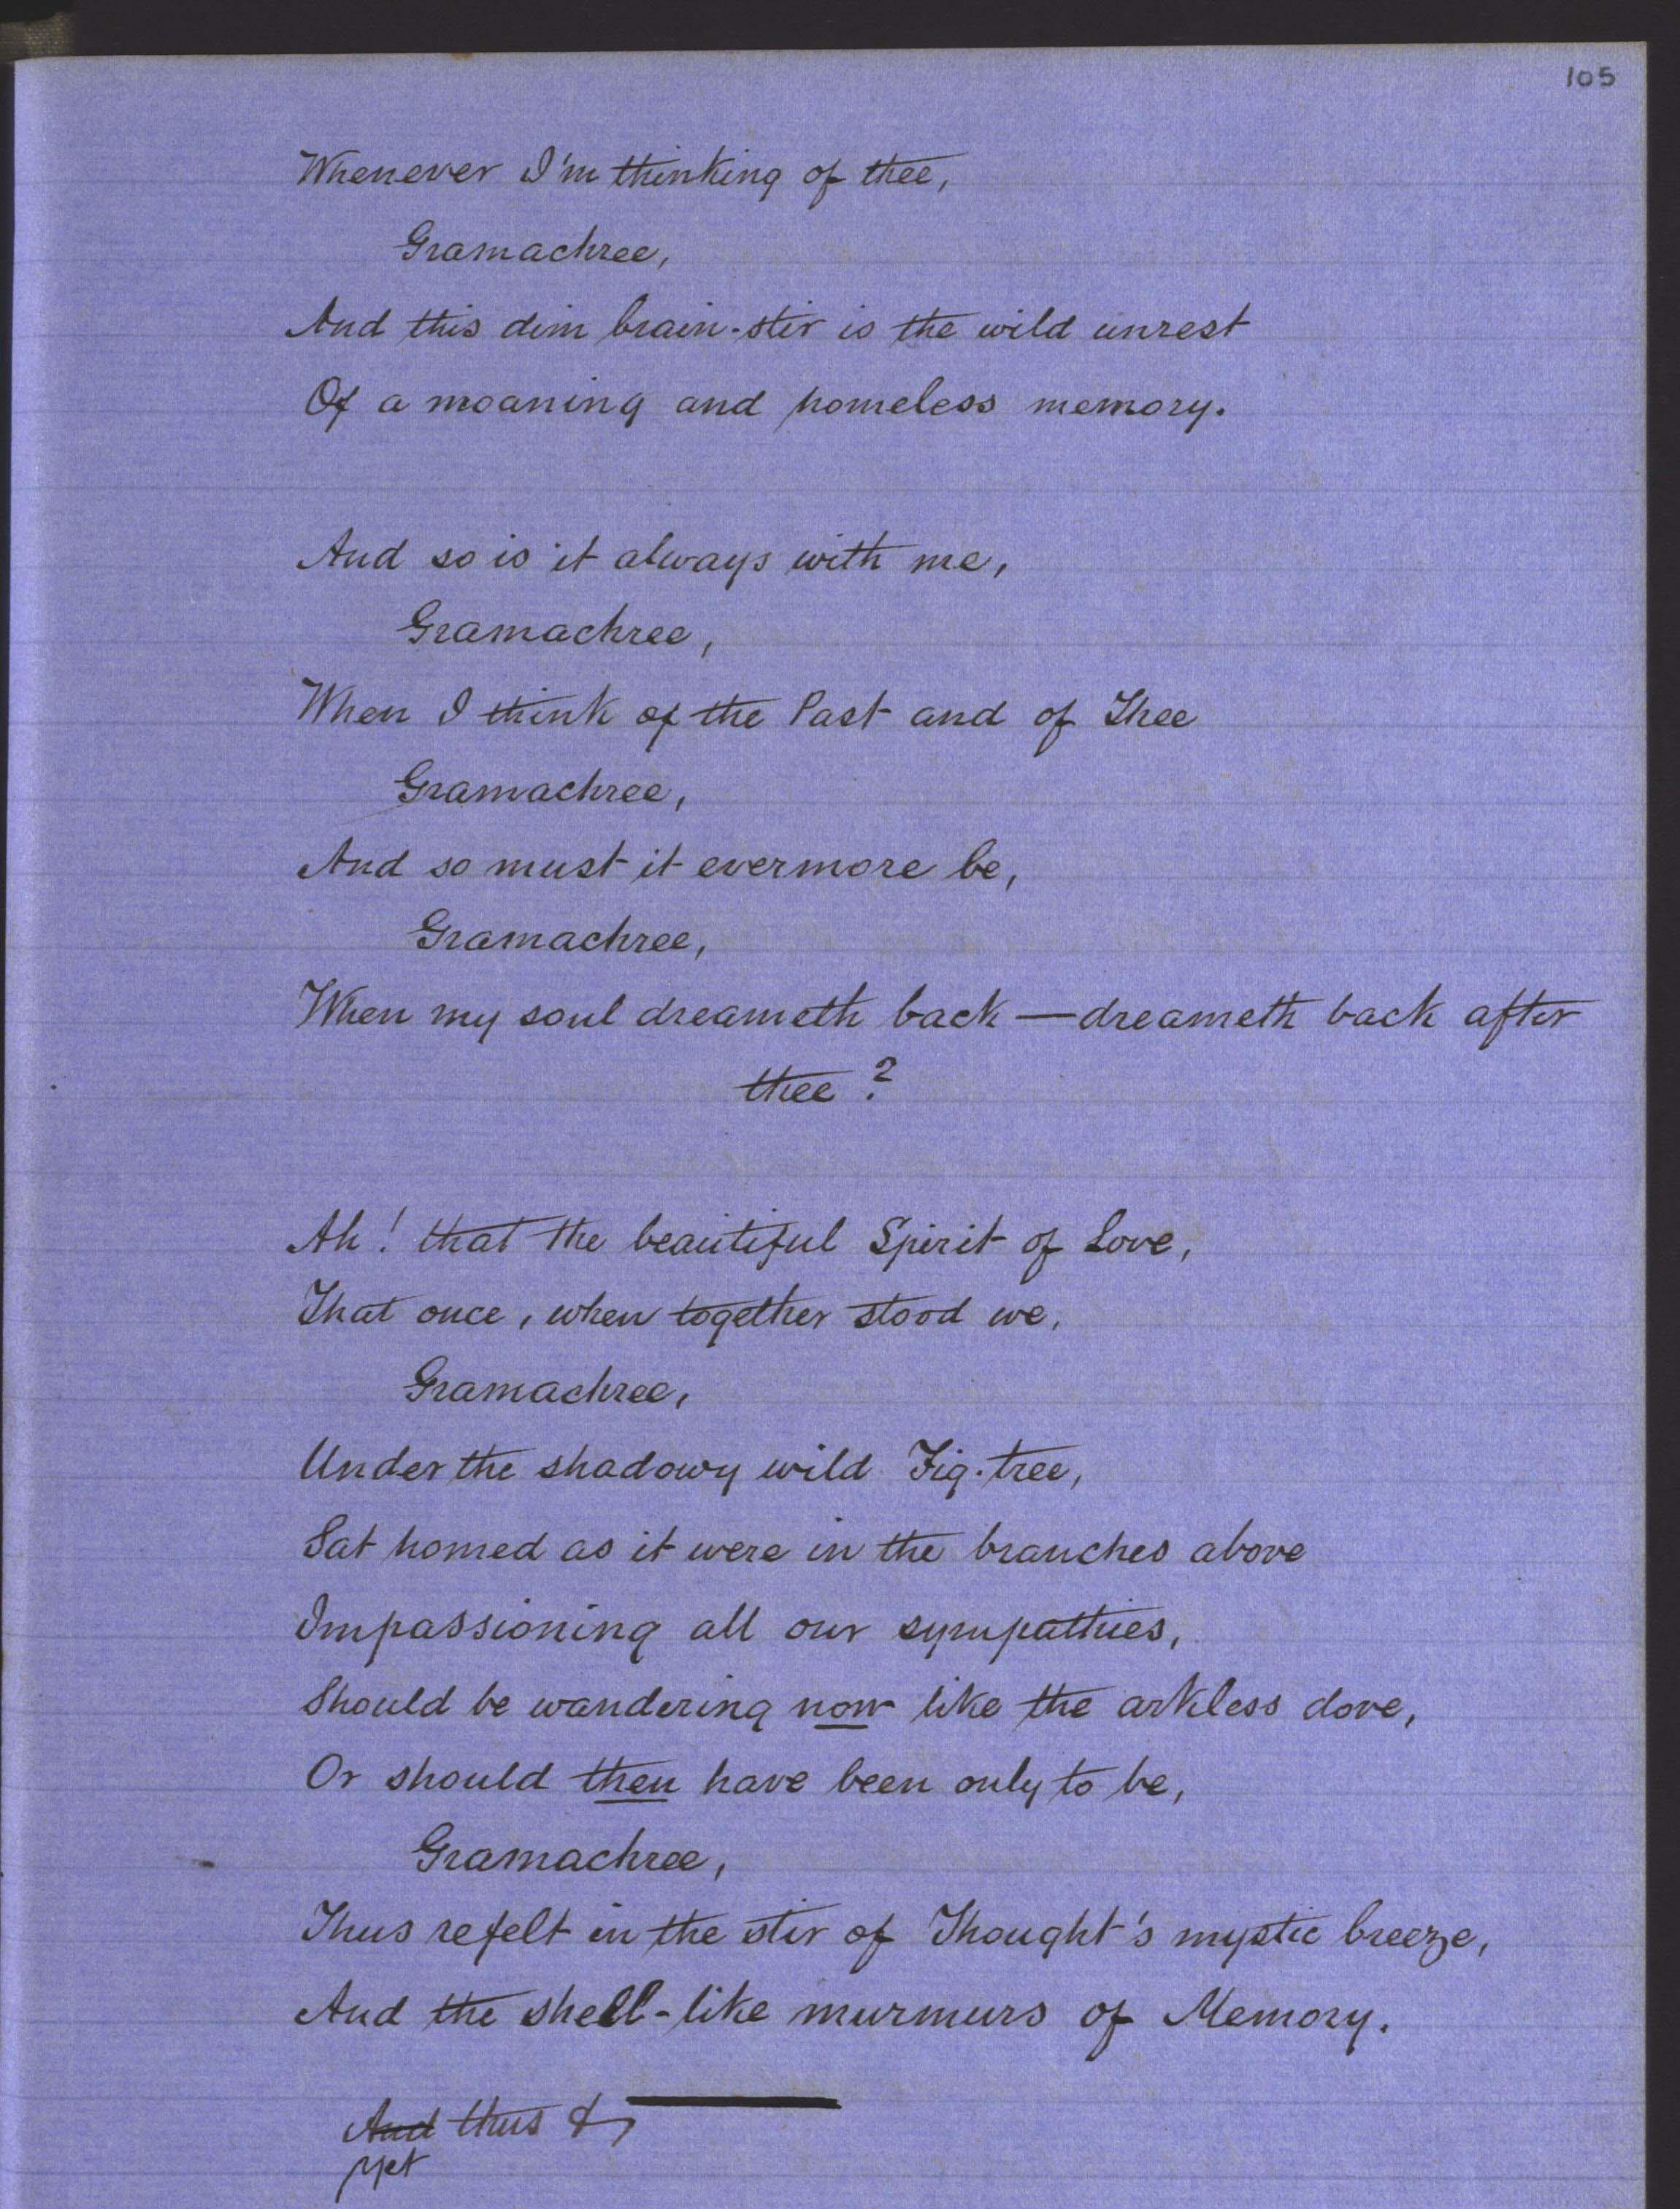 105
Whenever I'm thinking of thee,
Gramachree,
And this dim brain-stir is the wild unrest
Of a moaning and homeless memory.
And so is it always with me,
Gramachree,
When I think of the Past and of Thee
Gramachree,
And so must it evermore be,
Gramachree,
When my soul dreameth back — dreameth back after
thee?
Ah! that the beautiful Spirit of Love,
That once, when together stood we,
Gramachree,
Under the shadowy wild Fig-tree,
Sat homed as it were in the branches above
Impassioning all our sympathies,
Should be wandering now like the arkless dove,
Or should then have been only to be,
Gramachree,
Thus refelt in the stir of Thought's mystic breeze,
And the shell-like murmurs of Memory.
And thus &
yet